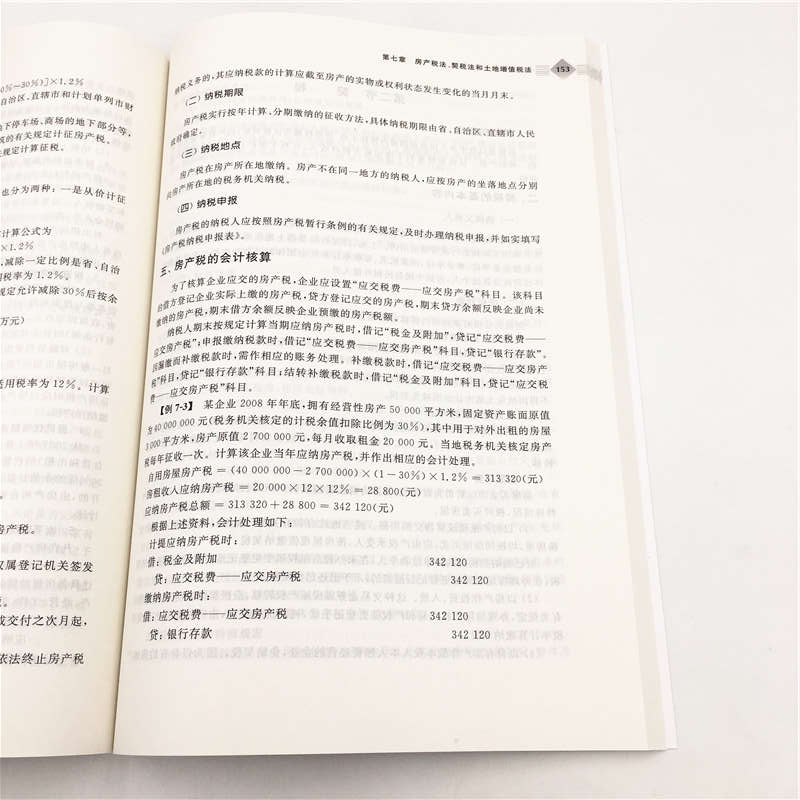 0%-30%)]×1.2%
自治区、直辖市和计划单列市财
地下停车场、商场的地下部分等,
的有关规定计征房产税。
规定计算征税。
也分为两种:一是从价计征
计算公式为
×1.2%
,减除一定比例是省、自治
税率为1.2%。
规定允许减除30%后按余
万元)
适用税率为12%。计算
房产税。
权属登记机关签发
或交付之次月起,
依法终止房产税
第七章 房产税法、契税法和土地增值税法
153
纳税义务的,其应纳税款的计算应截至房产的实物或权利状态发生变化的当月月末。
(二)纳税期限
房产税实行按年计算、分期缴纳的征收方法,具体纳税期限由省、自治区、直辖市人民
政府确定。
(三)纳税地点
房产税在房产所在地缴纳。房产不在同一地方的纳税人,应按房产的坐落地点分别
向房产所在地的税务机关纳税。
(四)纳税申报
房产税的纳税人应按照房产税暂行条例的有关规定,及时办理纳税申报,并如实填写
《房产税纳税申报表》。
三、房产税的会计核算
为了核算企业应交的房产税,企业应设置“应交税费——应交房产税”科目。该科目
的借方登记企业实际上缴的房产税,贷方登记应交的房产税,期末贷方余额反映企业尚未
缴纳的房产税,期末借方余额反映企业预缴的房产税额。
纳税人期末按规定计算当期应纳房产税时,借记“税金及附加”,贷记“应交税费——
应交房产税”;申报缴纳税款时,借记“应交税费——应交房产税”科目,贷记“银行存款”。
因漏缴而补缴税款时,需作相应的账务处理。补缴税款时,借记“应交税费——应交房产
税”科目,贷记“银行存款”科目;结转补缴税款时,借记“税金及附加”科目,贷记“应交税
费——应交房产税”科目。
【例 7-3】 某企业 2008 年年底,拥有经营性房产 50 000 平方米,固定资产账面原值
为 40 000 000 元(税务机关核定的计税余值扣除比例为 30%),其中用于对外出租的房屋
3 000 平方米,房产原值 2 700 000 元,每月收取租金 20 000 元。当地税务机关核定房产
税每年征收一次。计算该企业当年应纳房产税,并作出相应的会计处理。
自用房屋房产税=(40 000 000-2 700 000)×(1-30%)×1.2%=313 320(元)
房租收入应纳房产税=20 000×12×12%=28 800(元)
应纳房产税总额=313 320+28 800=342 120(元)
根据上述资料,会计处理如下:
计提应纳房产税时:
借:税金及附加 342 120
贷:应交税费——应交房产税 342 120
缴纳房产税时:
借:应交税费——应交房产税 342 120
贷:银行存款 342 120